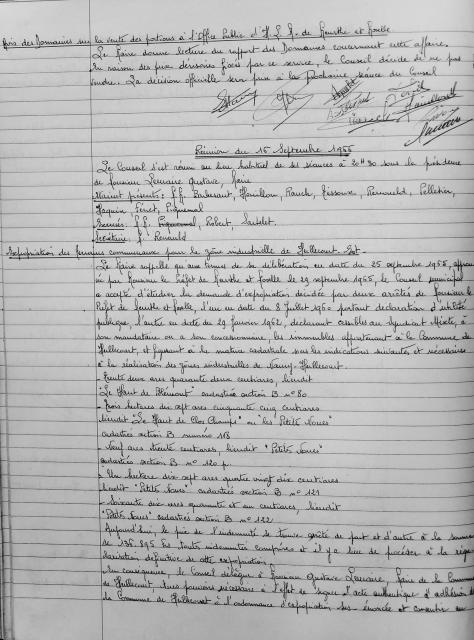 Avis des Domaines sur la vente des portions à l'Office Public d'H.L.M. de Meurthe et Moselle
Le Maire donne lecture du rapport des Domaines concernant cette affaire.
En raison des prix dérisoires fixés par ce service, le Conseil décide de ne pas
vendre. La décision officielle sera prise à la prochaine séance du Conseil
Réunion du 15 Septembre 1966
Le Conseil s'est réuni au lieu habituel de ses séances à 20H30 sous la présidence
de Monsieur Lemaire Gustave, Maire
Etaient présents:
Haquin, Pénet, Piquemal
Excusés: Robert,
Secrétaire
Expropriation des terrains communaux pour la zône industrielle de
Le Maire rappelle qu'aux termes de sa délibération en date du 25 septembre 1965,
ée par Monsieur le Préfet de Meurthe et Moselle le 29 septembre 1965, le Conseil municipal
a accepté d'étudier la demande d'expropriation décidée par deux arrêtés de Monsieur le
Préfet de Meurthe et Moselle, l'un en date du 8 Juillet 1960 portant déclaration d'utilité
publique, l'autre en date du 29 Janvier 1962, déclarant cessibles au Syndicat Mixte, à
son mandataire ou à son concessionnaire, les immeubles appartenant à la Commune de
et figurant à la matrice cadastrale sous les indications suivantes et nécessaires
à la réalisation des zônes industrielles de Nancy-
- Trente deux ares quarante deux centiares, lieudit
"Le Haut de " cadastrée section B n° 80
- Trois hectares dix sept ares cinquante cinq centiares
lieudit "Le Haut de Clos Champs" ou "les Petites Noues"
cadastrés section B numéro 118
- Neuf ares trente centiares, lieudit "Petites Noues"
cadastrés section B n° 120 p.
- Un hectare dix sept ares quatre vingt dix centiares
lieudit "Petites Noues" cadastrés section B n° 121
- Soixante dix ares quarante et un centiares, lieudit
"Petites Noues" cadastrés section B n° 122
Aujourd'hui le prix de l'indemnité se trouve arrêté de part et d'autre à la somme
de 136.895 Frs toutes indemnités comprises et il y a lieu de procéder à la régu-
larisation définitive de cette expropriation
En conséquence, le Conseil délègue à Monsieur Gustave Lemaire, Maire de la Commune
de tous pouvoirs nécessaires à l'effet de signer l'acte authentique d'adhésion de
la Commune de à l'ordonnance d'expropriation sus-énoncée et consentir